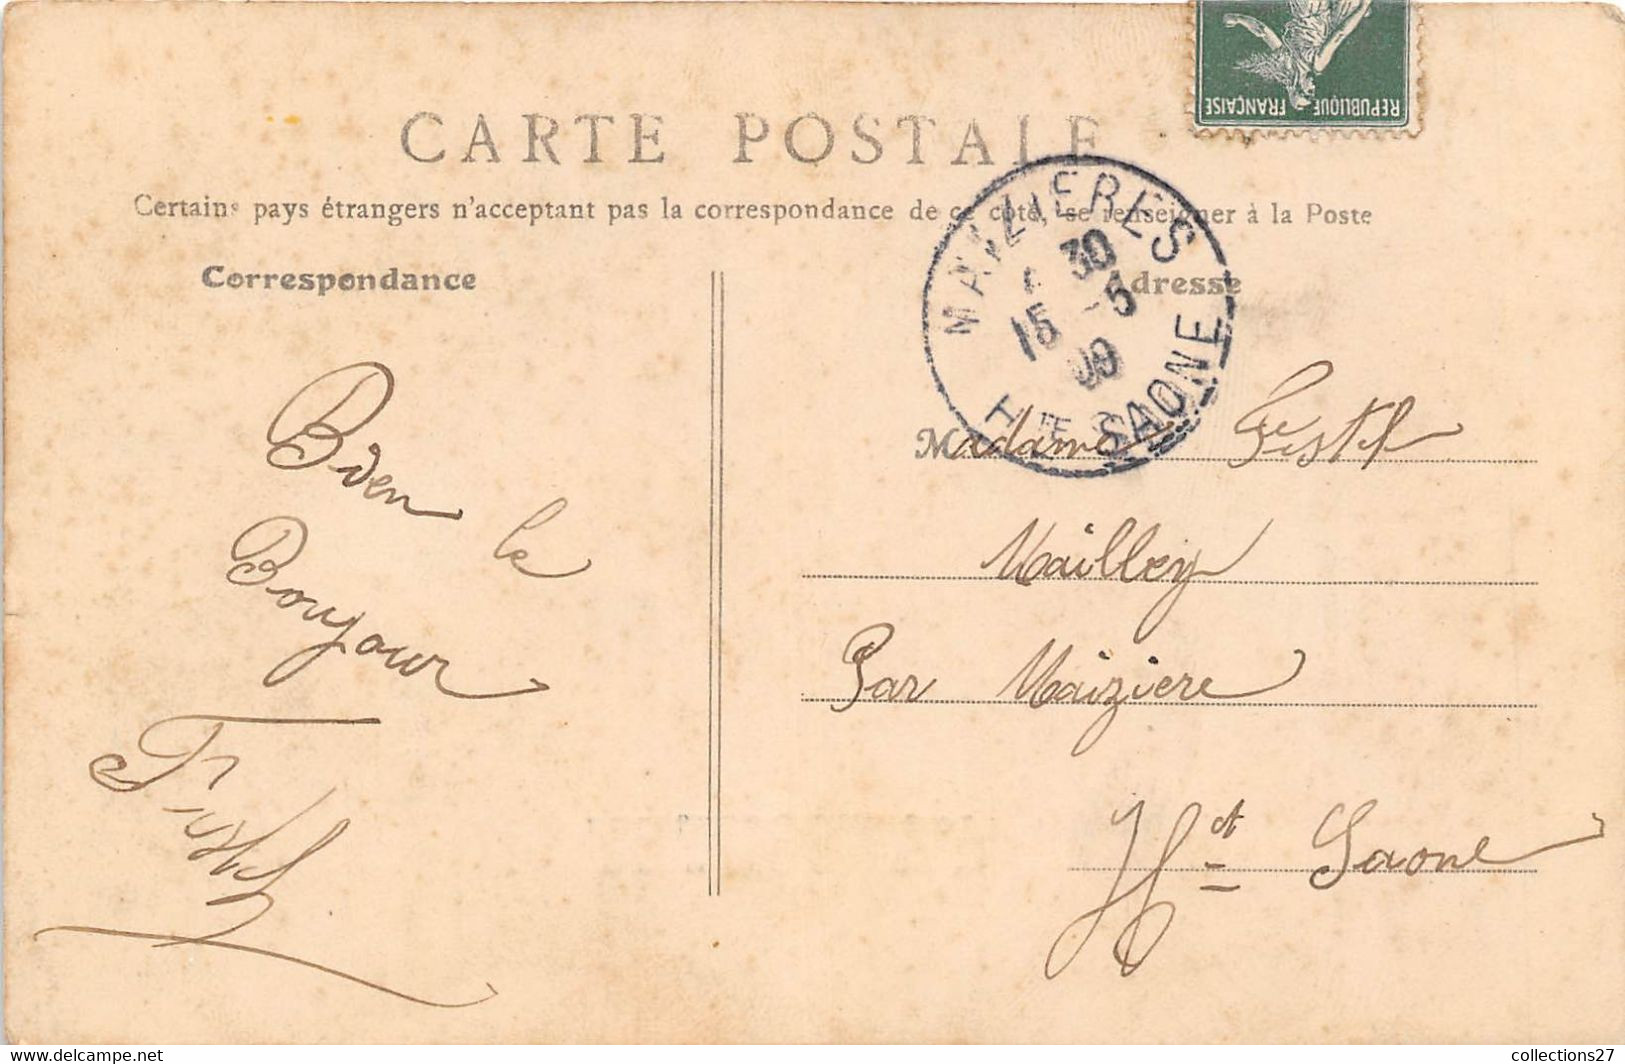 REPUBLIQUE FRANÇAISE
CARTE POSTALE
Certains pays étrangers n'acceptent pas la correspondance de ce côté, se renseigner à la Poste
Correspondance
Adresse
MAIZIERES
30
15 -5
09
HTE SAONE
Bien le
Bonjour
Madame
Mailley
Par Maiziere
Hte Saone
collections27